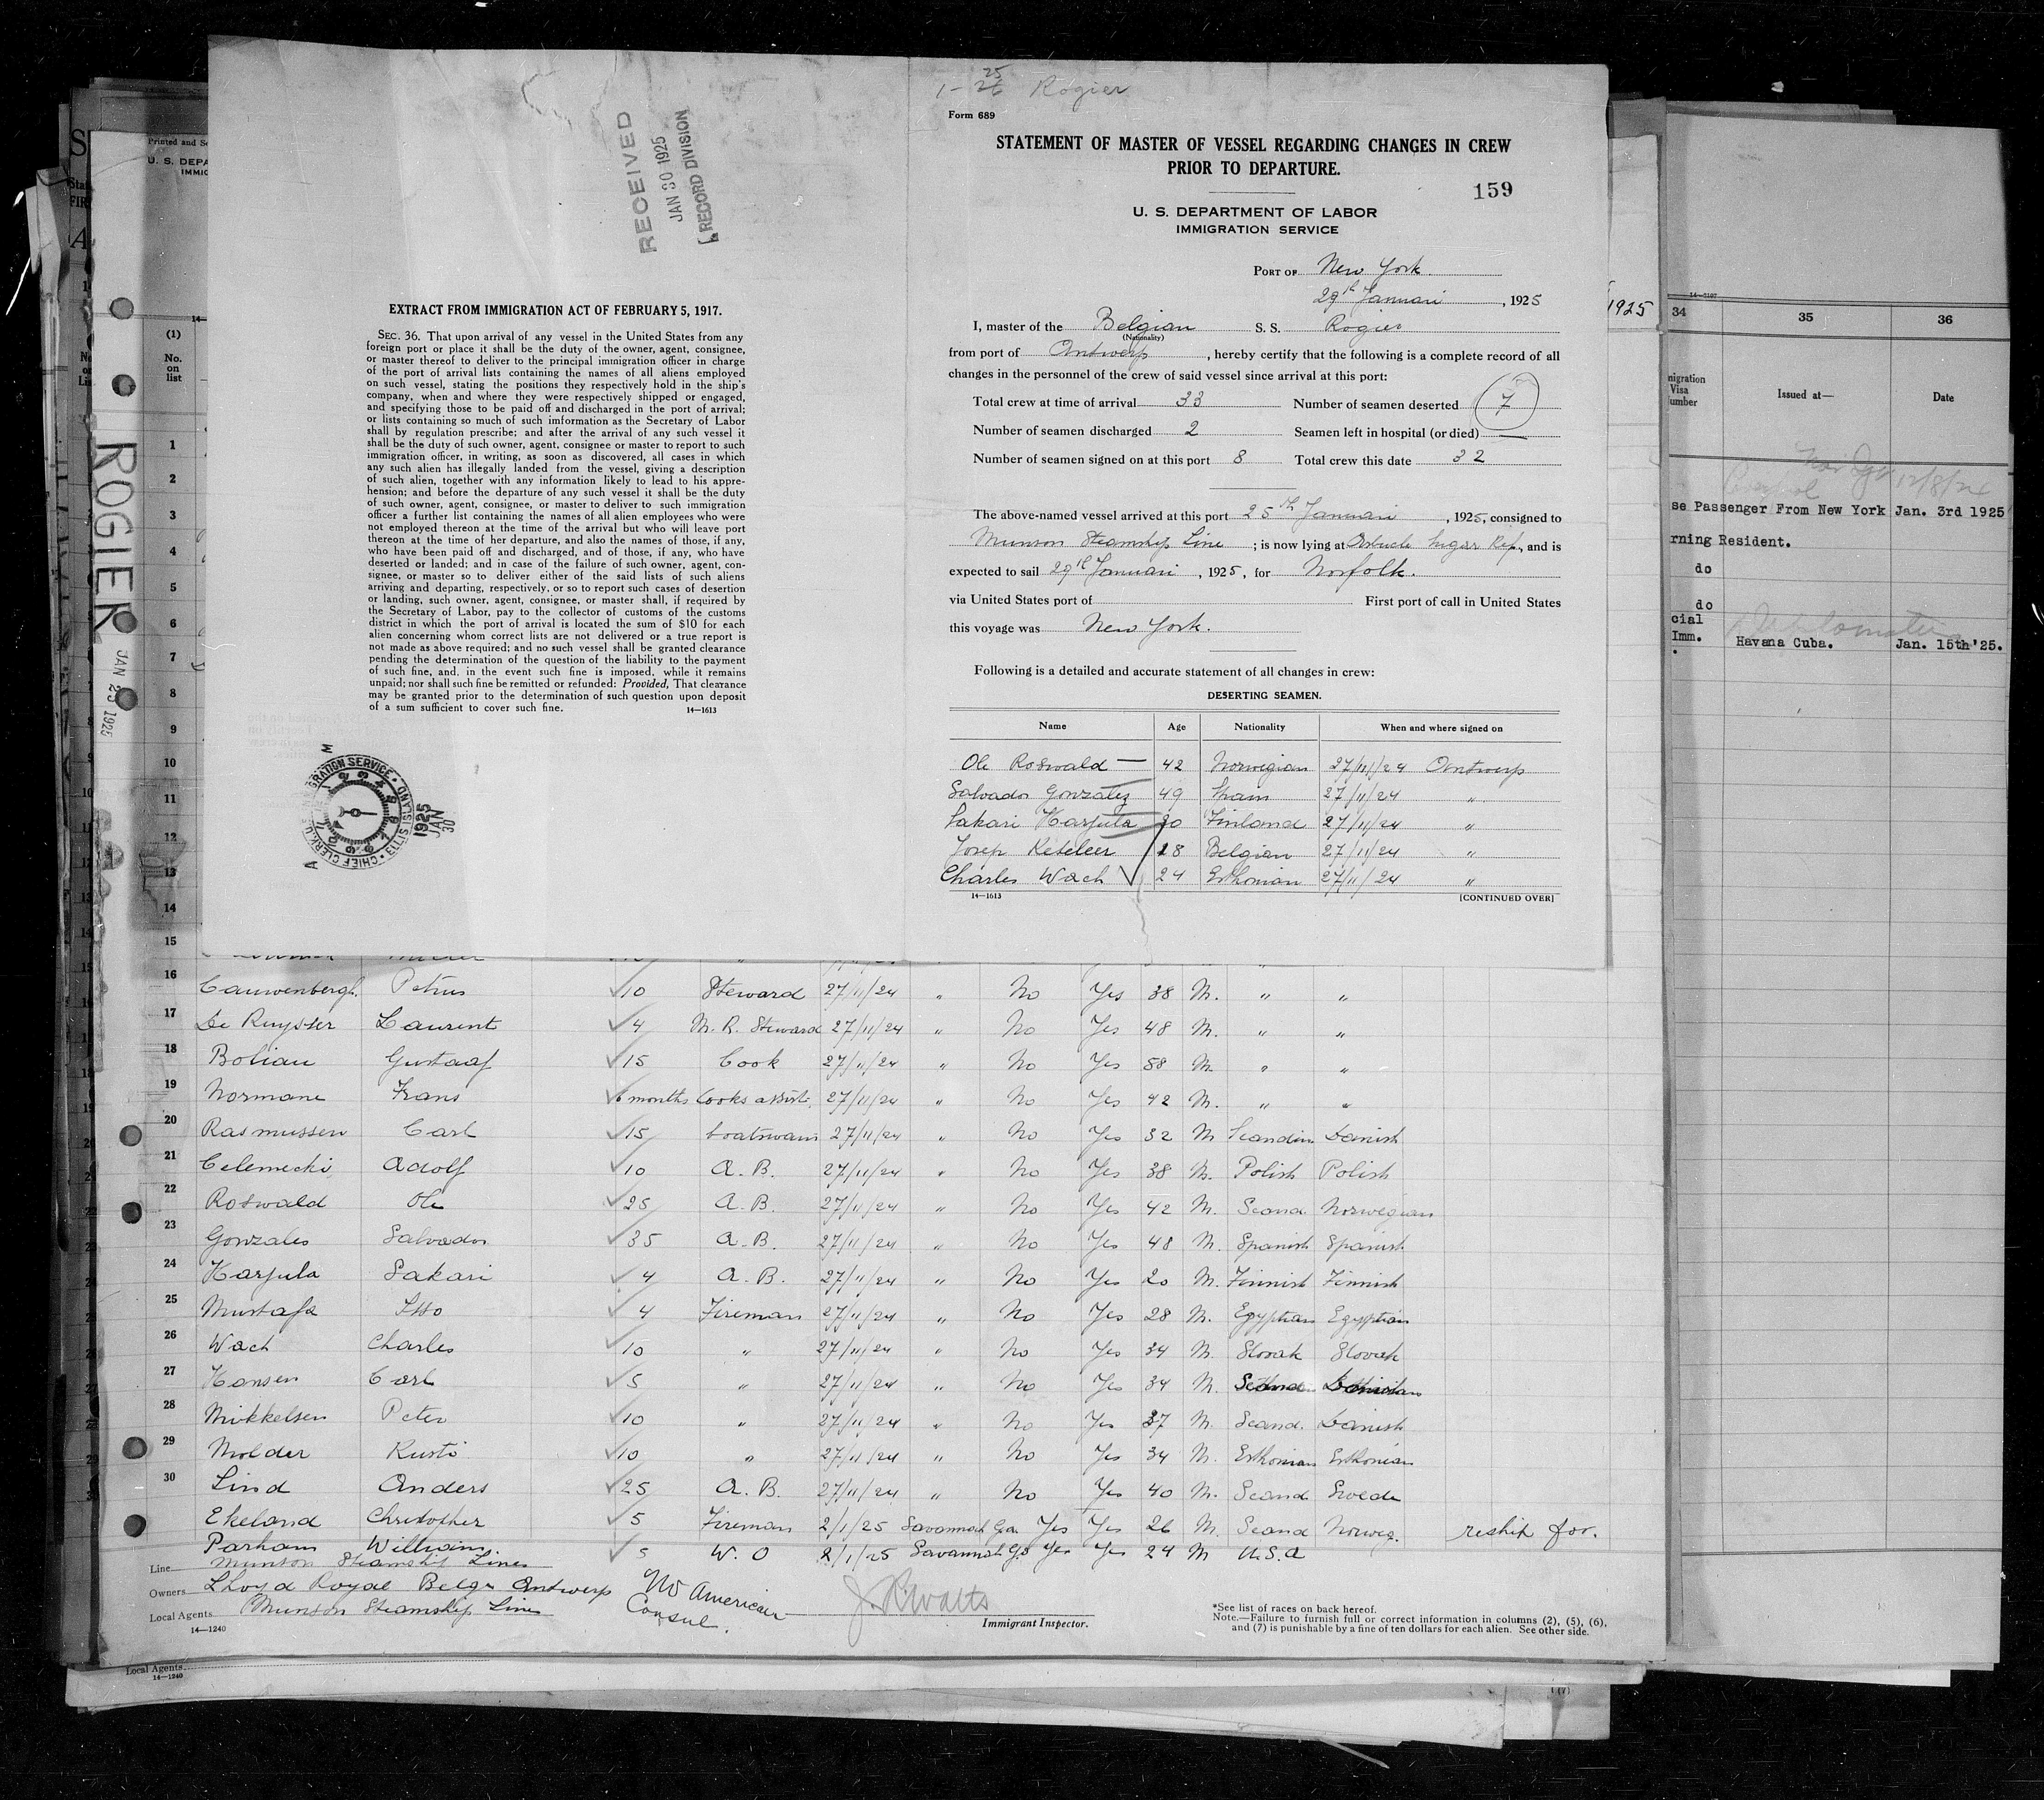 RECEIVED
JAN 30 1925
RECORD DIVISION
EXTRACT FROM IMMIGRATION ACT OF FEBRUARY 5, 1917.
SEC. 36. That upon arrival of any vessel in the United States from any
foreign port or place it shall be the duty of the owner, agent, consignee,
or master thereof to deliver to the principal immigration officer in charge
of the port of arrival lists containing the names of all aliens employed
on such vessel, stating the positions they respectively hold in the ship's
company, when and where they were respectively shipped or engaged,
and specifying those to be paid off and discharged in the port of arrival;
or lists containing so much of such information as the Secretary of Labor
shall by regulation prescribe; and after the arrival of any such vessel it
shall be the duty of such owner, agent, consignee or master to report to such
immigration officer, in writing, as soon as discovered, all cases in which
any such alien has illegally landed from the vessel, giving a description
of such alien, together with any information likely to lead to his appre-
hension; and before the departure of any such vessel it shall be the duty
of such owner, agent, consignee, or master to deliver to such immigration
officer a further list containing the names of all alien employees who were
not employed thereon at the time of the arrival but who will leave port
thereon at the time of her departure, and also the names of those, if any,
who have been paid off and discharged, and of those, if any, who have
deserted or landed; and in case of the failure of such owner, agent, con-
signee, or master so to deliver either of the said lists of such aliens
arriving and departing, respectively, or so to report such cases of desertion
or landing, such owner, agent, consignee, or master shall, if required by
the Secretary of Labor, pay to the collector of customs of the customs
district in which the port of arrival is located the sum of $10 for each
alien concerning whom correct lists are not delivered or a true report is
not made as above required; and no such vessel shall be granted clearance
pending the determination of the question of the liability to the payment
of such fine, and, in the event such fine is imposed, while it remains
unpaid; nor shall such fine be remitted or refunded: Provided, That clearance
may be granted prior to the determination of such question upon deposit
of a sum sufficient to cover such fine. 14—1613
1925 JAN 30
Rogier
Form 689
STATEMENT OF MASTER OF VESSEL REGARDING CHANGES IN CREW
PRIOR TO DEPARTURE.
159
U. S. DEPARTMENT OF LABOR
IMMIGRATION SERVICE
PORT OF New York.
29th Januari, 1925
I, master of the Belgian S. S. Rogier
(Nationality)
from port of Antwerp, hereby certify that the following is a complete record of all
changes in the personnel of the crew of said vessel since arrival at this port:
Total crew at time of arrival 33 Number of seamen deserted 7
Number of seamen discharged 2 Seamen left in hospital (or died) —
Number of seamen signed on at this port 8 Total crew this date 32
The above-named vessel arrived at this port 25th Januari, 1925, consigned to
Munson Steamship Line; is now lying at Arbucle Sugar Ref., and is
expected to sail 29th Januari, 1925, for Norfolk.
via United States port of First port of call in United States
this voyage was New York.
Following is a detailed and accurate statement of all changes in crew:
DESERTING SEAMEN.
Name Age Nationality When and where signed on
Ole Roswald — 42 Norwegian 27/11/24 Antwerp
Salvador Gonzalez 49 Spain 27/11/24 "
Sakari Karjula 20 Finland 27/11/24 "
Josep Keteleer 18 Belgian 27/11/24 "
Charles Wach 24 Esthonian 27/11/24 "
14—1613 [CONTINUED OVER]
ROGIER
JAN 25 1925
Printed and
U. S. DEPA
IMMIG
(1)
No.
on
list
1
2
3
4
5
6
7
8
9
10
11
12
13
14
15
1925
34 35 36
migration
Visa
umber
Issued at— Date
12/8/24
se Passenger From New York Jan. 3rd 1925
rning Resident.
do
do
cial
Imm. Havana Cuba. Jan. 15th'25.
16 Cauwenbergh. Petrus 10 Steward 27/11/24 " No Yes 38 M. " "
17 De Ruysser Laurent 4 M. R. Steward 27/11/24 " No Yes 48 M. " "
18 Bolian Gustaaf 15 Cook 27/11/24 " No Yes 58 M. " "
19 Normane Frans 6 months Cooks assist. 27/11/24 " No Yes 42 M. " "
20 Rasmussen Carl 15 boatswain 27/11/24 " No Yes 32 M Scandin Danish
21 Celemecki Adolf 10 A. B. 27/11/24 " No Yes 38 M. Polish Polish
22 Roswald Ole 25 A. B. 27/11/24 " No Yes 42 M. Scand Norwegian
23 Gonzales Salvador 35 A. B. 27/11/24 " No Yes 48 M. Spanish Spanish
24 Karjula Sakari 4 A. B. 27/11/24 " No Yes 20 M. Finnish Finnish
25 Mustafa Isso 4 Fireman 27/11/24 " No Yes 28 M. Egyptian Egyptian
26 Wach Charles 10 " 27/11/24 " No Yes 34 M. Slovak Slovak
27 Hansen Carl 5 " 27/11/24 " No Yes 34 M.
28 Mikkelsen Peter 10 " 27/11/24 " No Yes 37 M. Scand. Danish
29 Molder Kusti 10 " 27/11/24 " No Yes 34 M. Esthonian Esthonian
30 Lind Anders 25 A. B. 27/11/24 " No Yes 40 M. Scand Swede
Ekeland Christopher 5 Fireman 2/1/25 Savannah Ga. Yes Yes 26 M. Scand Norweg. reship for.
Parham William 5 W. O 2/1/25 Savannah Ga Yes Yes 24 M U.S.A
Line Munson Steamship Lines
Owners Lloyd Royal Belge Antwerp
Local Agents Munson Steamship Lines
14—1240
No American
Consul.
Immigrant Inspector.
*See list of races on back hereof.
Note.—Failure to furnish full or correct information in columns (2), (5), (6),
and (7) is punishable by a fine of ten dollars for each alien. See other side.
Local Agents
14—1240